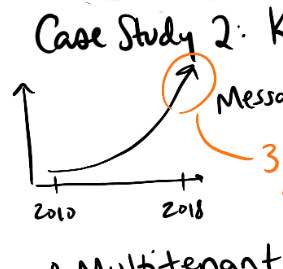 Case Study 2: K
Messa
3
2010 2018
Multitenant